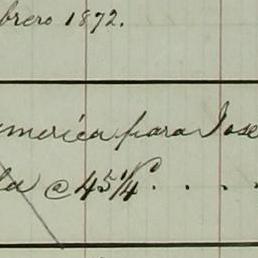 brero 1872.
america para Jose
la @ 45 1/4 . . . .